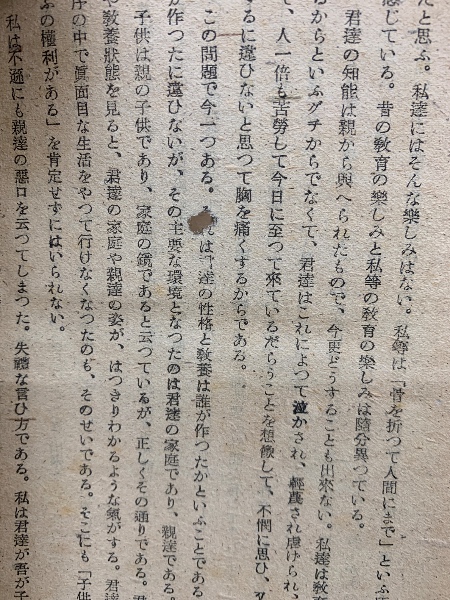 だと思ふ。私達にはそんな樂しみはない。私等は「骨を折つて人間にまで」といふ
感じている。昔の敎育の樂しみと私等の敎育の樂しみは隨分異つている。
君達の知能は親から與へられたもので、今更どうすることも出來ない。私達は敎
るからといふグチからでなくて、君達はこれによつて泣かされ、輕蔑され虐げられ、
て、人一倍も苦勞して今日に至つて來ているだらうことを想像して、不憫に思ひ、
するに違ひないと思つて胸を痛くするからである。
この問題で今一つある。は達の性格と敎養は誰が作つたかといふことである
が作つたに違ひないが、その主要な環境となつたのは君達の家庭であり、親達である。
子供は親の子供であり、家庭の鏡であると云つているが、正しくその通りである。
や敎養狀態を見ると、君達の家庭や親達の姿が、はつきりわかるような氣がする。君達
序の中で眞面目な生活をやつて行けなくなつたのも、そのせいである。そこにも「子供
ぶの權利がある」を肯定せずにはいられない。
私は不遜にも親達の惡口を云つてしまつた。失禮な言ひ方である。私は君達が吾が子